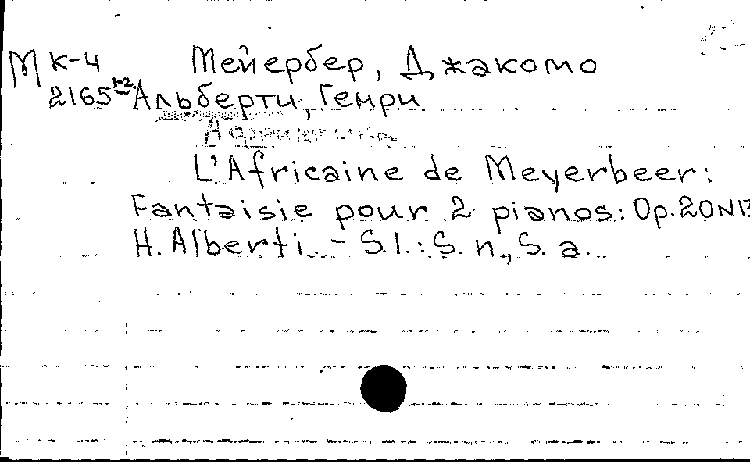 М К-4 Мейербер, Джакомо
2165 1-2 Альберти, Генри
L'Africaine de Meyerbeer:
Fantaisie pour 2 pianos: Op. 20 N13
H. Alberti. – S.l.: S. n., S. a.